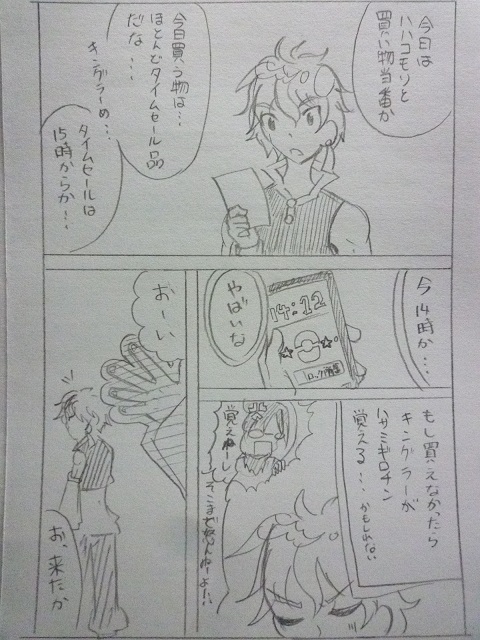 今日は
ハハコモリと
買い物当番か
今日買う物は…
ほとんどタイムセール品
だな…
キングラーめ…
タイムセールは
15時からか…
今14時か…
14:12
ロック解除
やばいな
もし買えなかったら
キングラーが
ハサミギロチン
覚える…かもしれない
覚えねーし
そこまで怒んねーよ!!
おーい
お、来たか